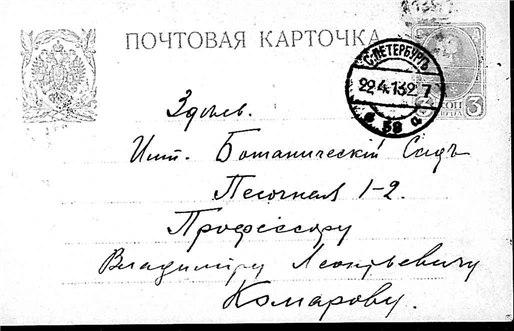 ПОЧТОВАЯ КАРТОЧКА
С.-ПЕТЕРБУРГЪ
22.4.13
Здѣсь.
Имп. Ботаническій Садъ
Песочная 1-2.
Профессору
Владиміру Леонтьевичу
Комарову.